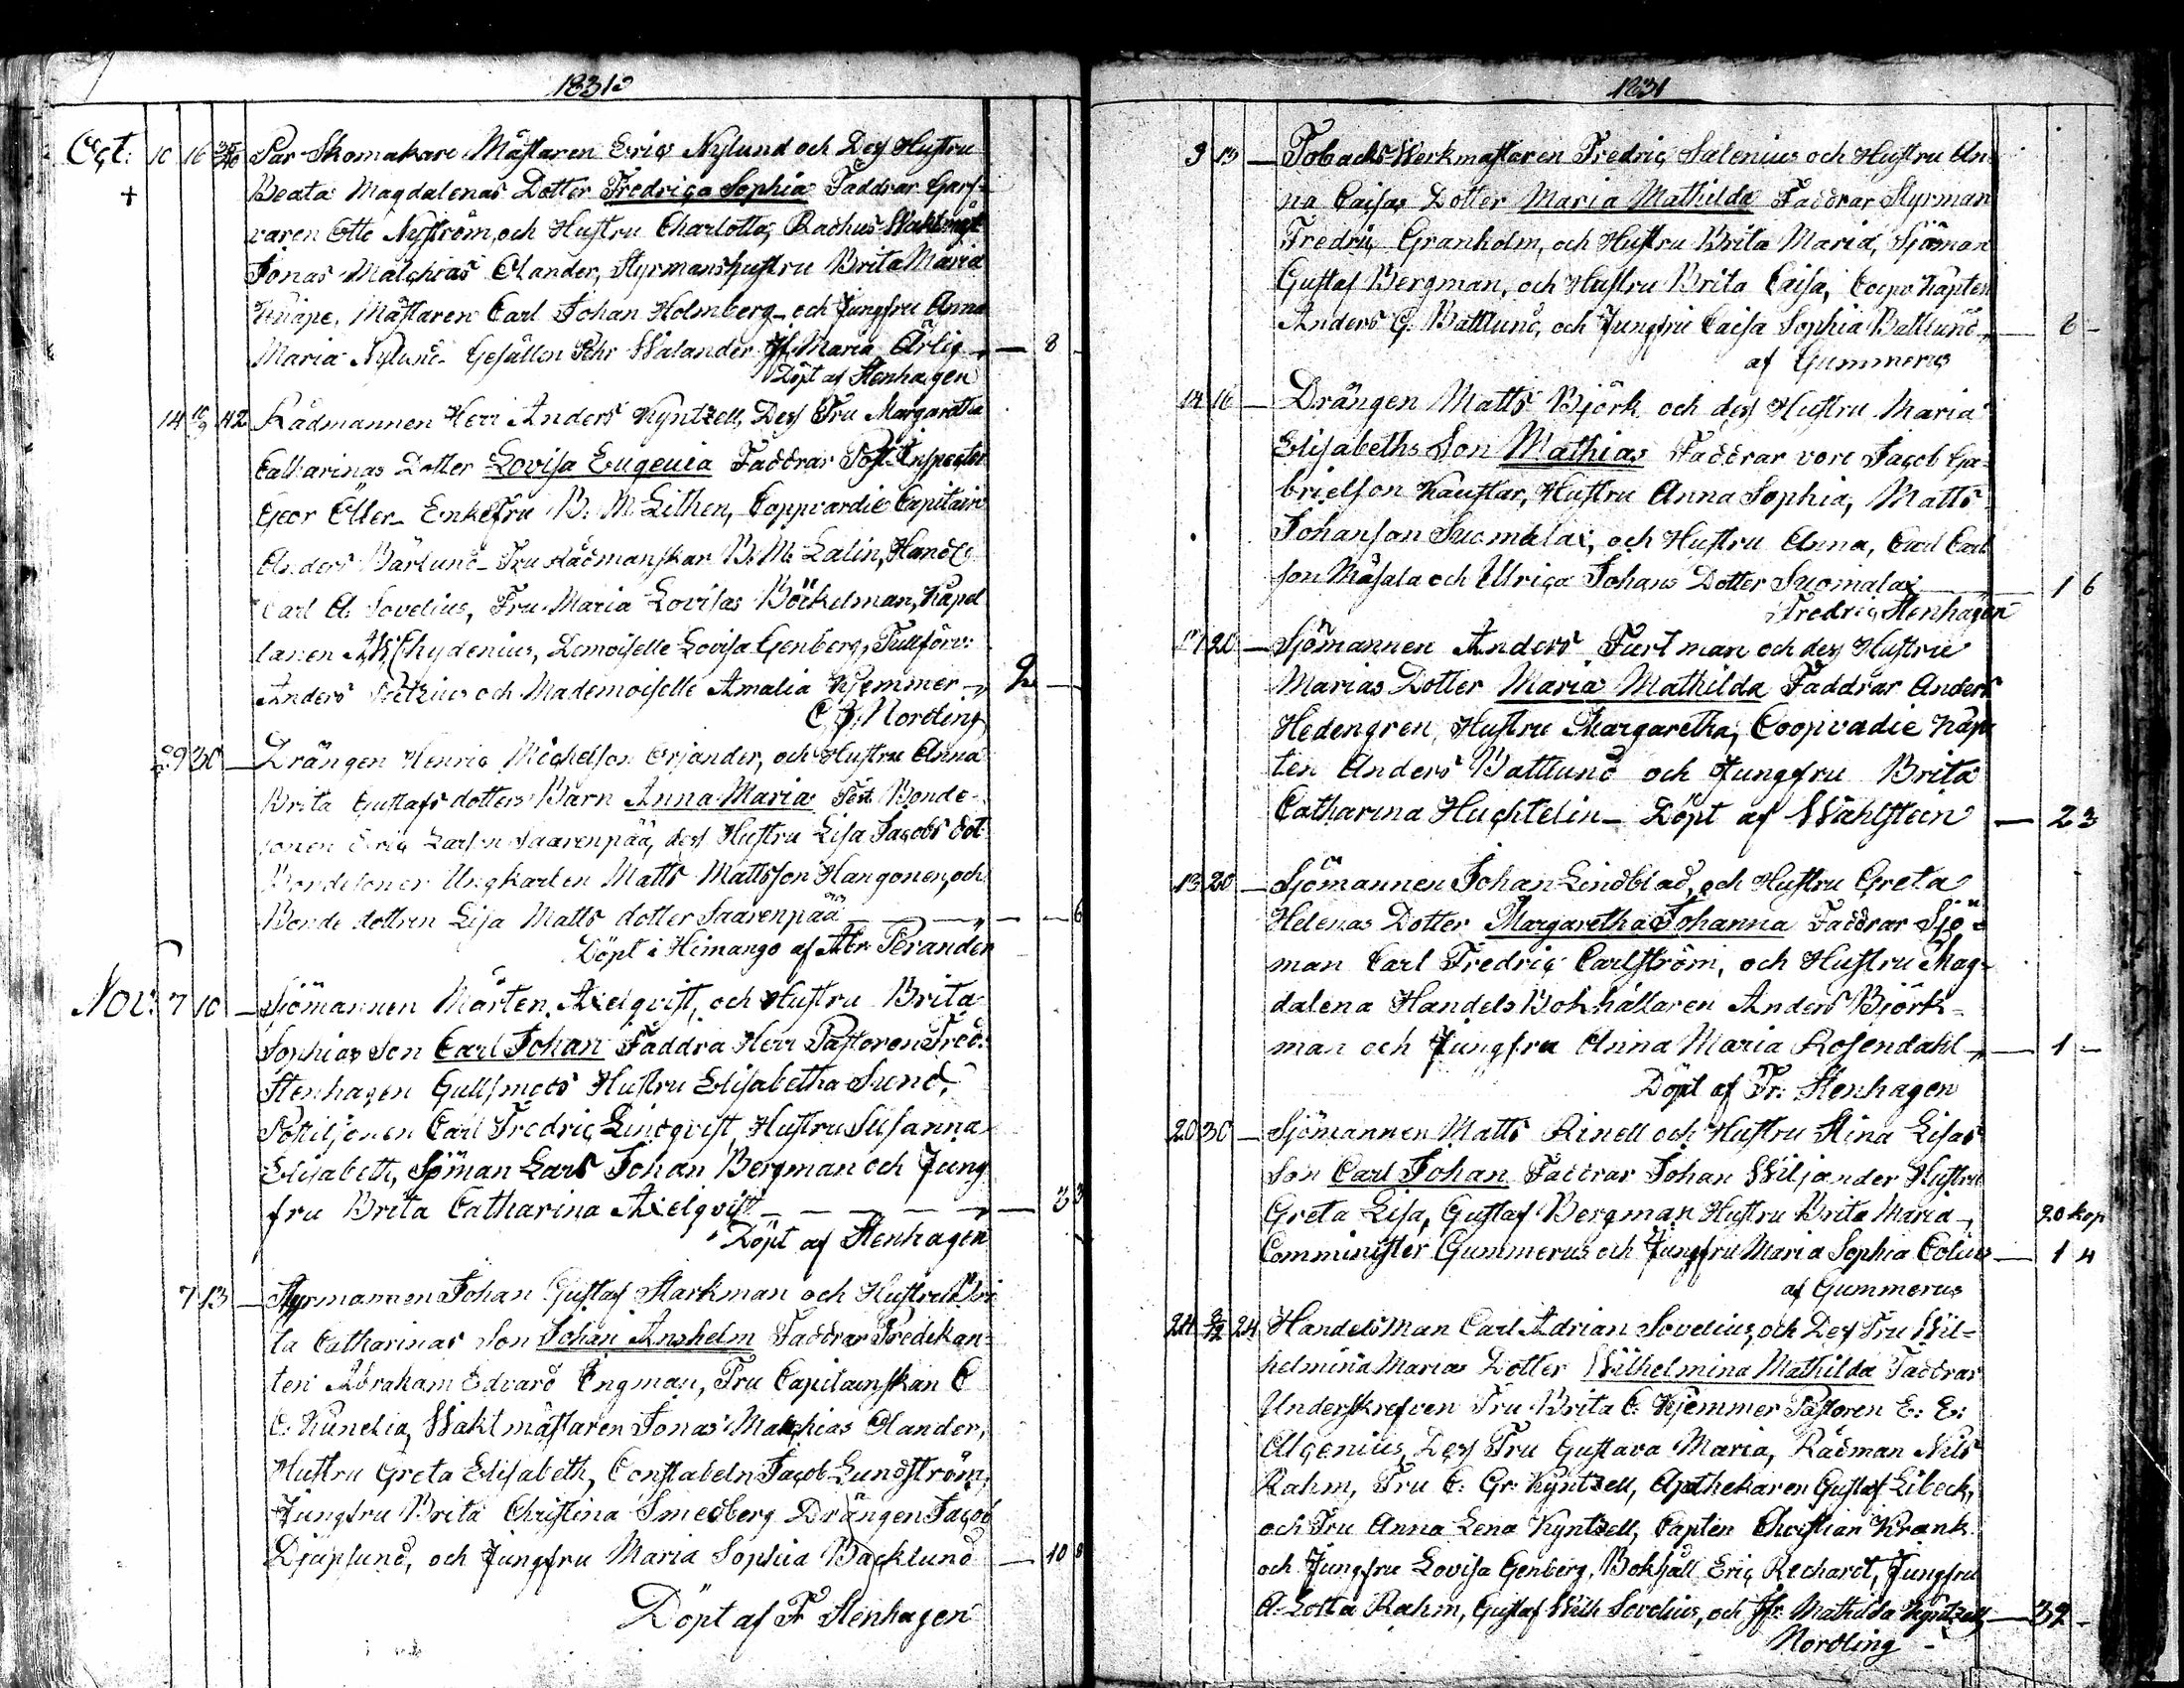 1831
Oct. 10 16 Par Skomakare Mästaren Eric Nylund och Dess Hustru
+ Beata Magdalenas Dotter Fredrica Sophia Faddrar Garf-
varen Otto Nyström, och Hustru Charlotta, Radhus Waktmäst
Jonas Malchias Olander, Styrmanshustru Brita Maria
Knape, Mästaren Carl Johan Holmberg och Jungfru Anna
Maria Nylund Gesällen Pehr Walander Jf. Maria Ärlig — 8
Döpt af Stenhagen
14 42 Rådmannen Herr Anders Kyntzell, Dess Fru Margaretha
Catharinas Dotter Lovisa Eugenia Faddrar Post Inspector
Öller Enkefru B. M. Lithen, Coppvardie Capitain
Anders Bärlund Fru Rådmanskan B. M. Lalin, Handl
Carl A. Sovelius, Fru Maria Lovisas Böckelman, Kapel
lanen Chydenius, Demoiselle Lovisa Genberg, Tullförv:
Anders och Mademoiselle Amalia Kjemmer —
Nordling
29 30 — Drängen Henric Michelson Orjander, och Hustru Anna
Brita Gustafs dotters Barn Anna Maria Test. Bonde-
sonen Eric Larson Saarenpää, dess Hustru Lisa Jacobs dot
Bondesonen Ungkarlen Matts Mattsson Hangonen, och
Bonde dottren Lisa Matts dotter Saarenpää — 6
Döpt i Himango af Abr. Perander
Nov. 7 10 — Sjömannen Mårten Axelqvist, och Hustru Brita
Sophias Son Carl Johan Faddra Herr Pastoren Fred.
Stenhagen Gullsmeds Hustru Elisabetha Sund,
Postiljonen Carl Fredric Lindqvist, Hustru Susanna
Elisabeth, Sjöman Lars Johan Bergman och Jung
fru Brita Catharina Axelqvist — 3 3
Döpt af Stenhagen
7 13 — Styrmannen Johan Gustaf Starkman och Hustru Bri
ta Catharinas Son Johan Anshelm Faddrar Predikan-
ten Abraham Edvard Engman, Fru Capitainskan C
C. Kunelia, Waktmästaren Jonas Malchias Olander,
Hustru Greta Elisabeth, Constabeln Jacob Lundström,
Jungfru Brita Christina Smedberg Drängen Jacob
Djuplund, och Jungfru Maria Sophia Backlund — 10 8
Döpt af Fr Stenhagen
1831
9 13 — Tobacks Werkmästaren Fredric Salenius och Hustru An
na Caisas Dotter Maria Mathilda Faddrar Styrman
Fredric Granholm, och Hustru Brita Maria, Sjöman
Gustaf Bergman, och Hustru Brita Caisa, Coopv Kapten
Anders G. Battlund, och Jungfru Caisa Sophia Battlund — 6 -
af Gummerus
14 16 — Drängen Matts Björk och dess Hustru Maria
Elisabeths Son Mathias Faddrar vore Jacob Ga-
brielson Kaustar, Hustru Anna Sophia, Matts
Johanson Suomalax, och Hustru Anna, Carl Carl
son Måsala och Ulrica Johans Dotter Suomalax — 1 6
Fredric Stenhagen
17 20 — Sjömannen Anders Furtman och dess Hustru
Marias Dotter Maria Mathilda Faddrar Anders
Hedengren, Hustru Margaretha, Coopvadie Kap
ten Anders Battlund och Jungfru Brita
Catharina Huchtelin — Döpt af Wahlstein — 2 3
13 20 — Sjömannen Johan Lindblad, och Hustru Greta
Helenas Dotter Margaretha Johanna Faddrar Sjö-
man Carl Fredric Carlström, och Hustru Mag-
dalena Handels Bokhållaren Anders Björk-
man och Jungfru Anna Maria Rosendahl — 1 —
Döpt af Fr: Stenhagen
20 30 — Sjömannen Matts Rinell och Hustru Stina Lisas
Son Carl Johan Faddrar Johan Wiljander Hustru
Greta Lisa, Gustaf Bergman Hustru Brita Maria — 20 kop
Comminister Gummerus och Jungfru Maria Sophia Colin — 1 4
af Gummerus
24 24 Handelsman Carl Adrian Sovelius, och Dess Fru Wil-
helmina Marias Dotter Wilhelmina Mathilda Faddrar
Underskrefven Fru Brita C. Kjemmer Pastoren E: E:
Algenius, Dess Fru Gustava Maria, Rådman Nils
Rahm, Fru C. Gr. Kyntzell, Apothekaren Gustaf Libeck,
och Fru Anna Lena Kyntzell, Capten Christian Krank
och Jungfru Lovisa Genberg, Bokhåll Eric Rechardt, Jungfru
A. Lotta Rahm, Gustaf Wilh Sovelius, och Jfr. Mathilda Kyntzell — 32 -
Nordling